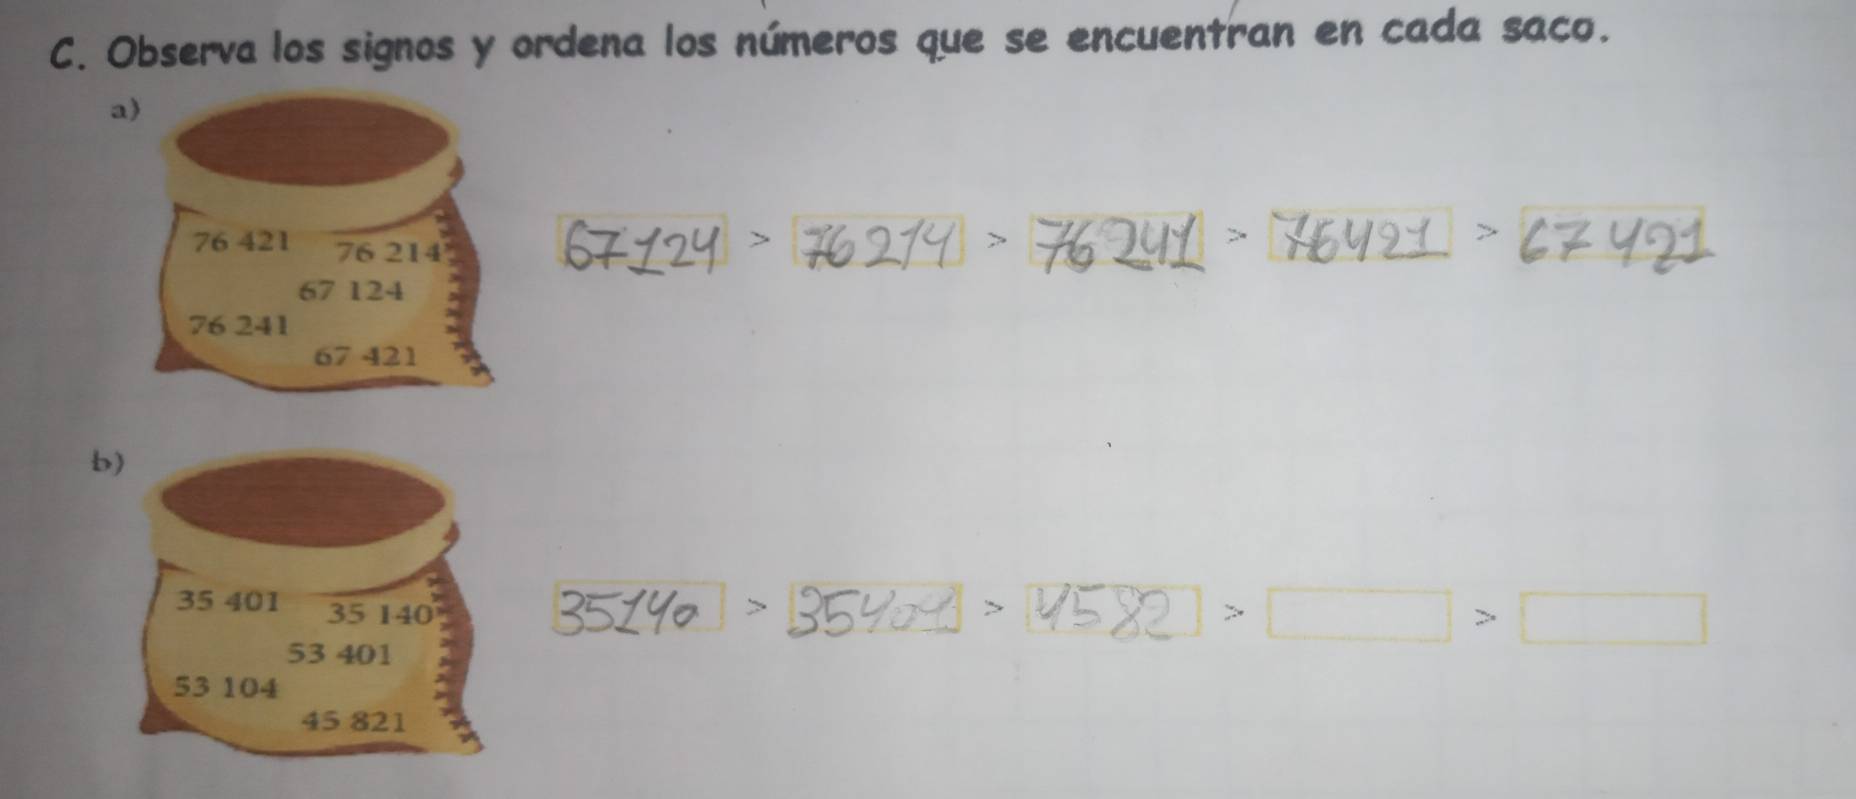 C. Observa los signos y ordena los números que se encuentran en cada saco.
a)
76 421 76 214
67 124
76 241
67 421
67124 > 76214 > 76241 > 76421 > 67421
b)
35 401 35 140
53 401
53 104
45 821
35140 > 35401 > 4582 > >